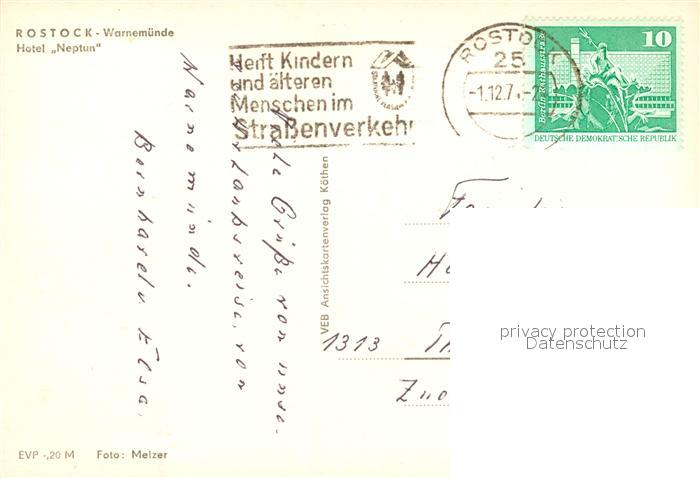 ROSTOCK - Warnemünde
Hotel „Neptun"
Helft Kindern
und älteren
Menschen im
Straßenverkehr
ROSTOCK
25
-1.12.7
10
Berlin Rathausstraße
DEUTSCHE DEMOKRATISCHE REPUBLIK
Grüße von unse.
Urlaubsreise, von
Warnemünde.
Bernhard u Elsa.
VEB Ansichtskartenverlag Köthen
1313
privacy protection
Datenschutz
EVP -,20 M Foto: Melzer